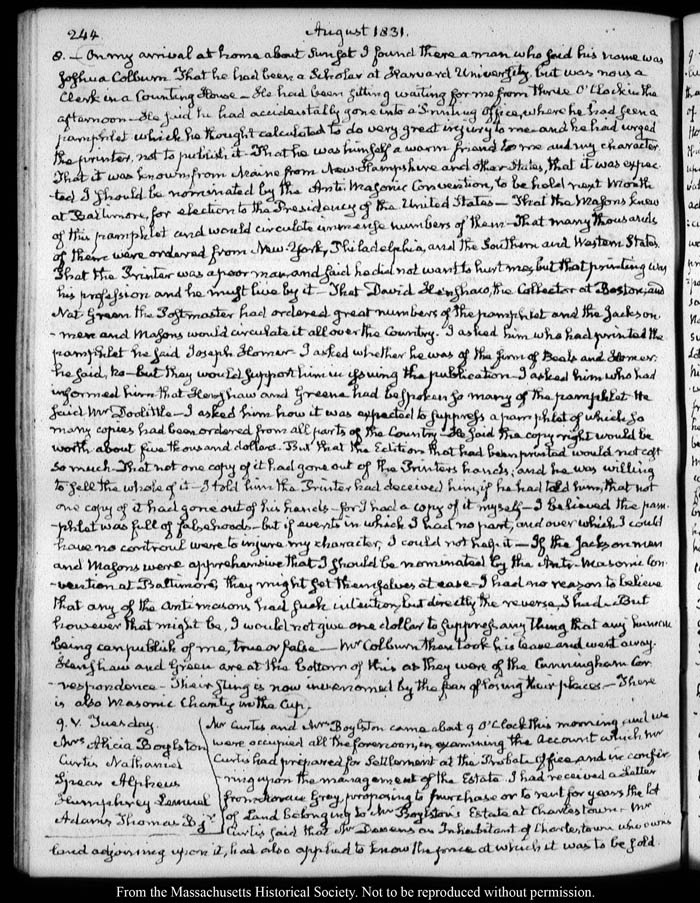 244.
August 1831.
8. — On my arrival at home about Sunset I found there a man who said his name was
Joshua Colburn That he had been a Scholar at Harvard University, but was now a
Clerk in a Counting House — He had been sitting waiting for me from three O'Clock in the
afternoon — He said he had accidentally gone into a Printing Office, where he had seen a
pamphlet which he thought calculated to do very great injury to me and he had urged
the printer, not to publish it — That he was himself a warm friend to me and my character
That it was known from Maine from New-Hampshire and other States, that it was expec-
ted I should be nominated by the Anti Masonic Convention, to be held next Month
at Baltimore, for election to the Presidency of the United States — That the Masons knew
of this pamphlet and would circulate immense numbers of them — That many thousands
of them were ordered from New-York, Philadelphia, and the Southern and Western States
That the Printer was a poor man, and said he did not want to hurt me, but that printing was
his profession and he must live by it — That David Henshaw, the Collector at Boston, and
Nat. Green the Postmaster had ordered great numbers of the pamphlet and the Jackson
-men and Masons would circulate it all over the Country. I asked him who had printed the
pamphlet he said Joseph Homer — I asked whether he was of the firm of Beals and Homer;
he said, no — but they would support him in issuing the publication — I asked him who had
informed him that Henshaw and Greene had bespoken so many of the pamphlet He
said Mr Doolittle — I asked him how it was expected to suppress a pamphlet of which so
many copies had been ordered from all parts of the Country — He said the copy right would be
worth about five thousand dollars. But that the Edition that had been printed would not cost
so much — That not one copy of it had gone out of the Printers hands; and he was willing
to sell the whole of it — I told him the Printer had deceived him, if he had told him, that not
one copy of it had gone out of his hands — for I had a copy of it myself — I believed the pam-
-phlet was full of falsehoods — but if events in which I had no part, and over which I could
have no controul were to injure my character, I could not help it — If the Jackson men
and Masons were apprehensive that I should be nominated by the Anti-Masonic Con-
-vention at Baltimore, they might set themselves at ease — I had no reason to believe
that any of the Antimasons had such intention, but directly the reverse, I had. But
however that might be, I would not give one dollar to suppress any thing that any human
being can publish of me, true or false — Mr Colburn then took his leave and went away.
Henshaw and Green are at the bottom of this as they were of the Cunningham Cor-
-respondence — Their sting is now invenomed by the fear of losing their places — There
is also Masonic Charity in the Cup.
9. V. Tuesday.
Mrs Alicia Boylston
Curtis Nathaniel
Spear Alpheus
Humphrey Lemuel
Adams Thomas B. jr
Mr Curtis and Mrs Boylston came about 9 O'Clock this morning and we
were occupied all the forenoon, in examining the Account which Mr
Curtis had prepared for Settlement at the Probate Office and in confer-
-ring upon the management of the Estate. I had received a Letter
from Horace Gray, proposing to purchase or to rent for years the lot
of Land belonging to Mr Boylston's Estate at Charlestown — Mr
Curtis said that Mr Devens an Inhabitant of Charlestown who owns
land adjoining upon it, had also applied to know the price at which it was to be sold.
From the Massachusetts Historical Society. Not to be reproduced without permission.